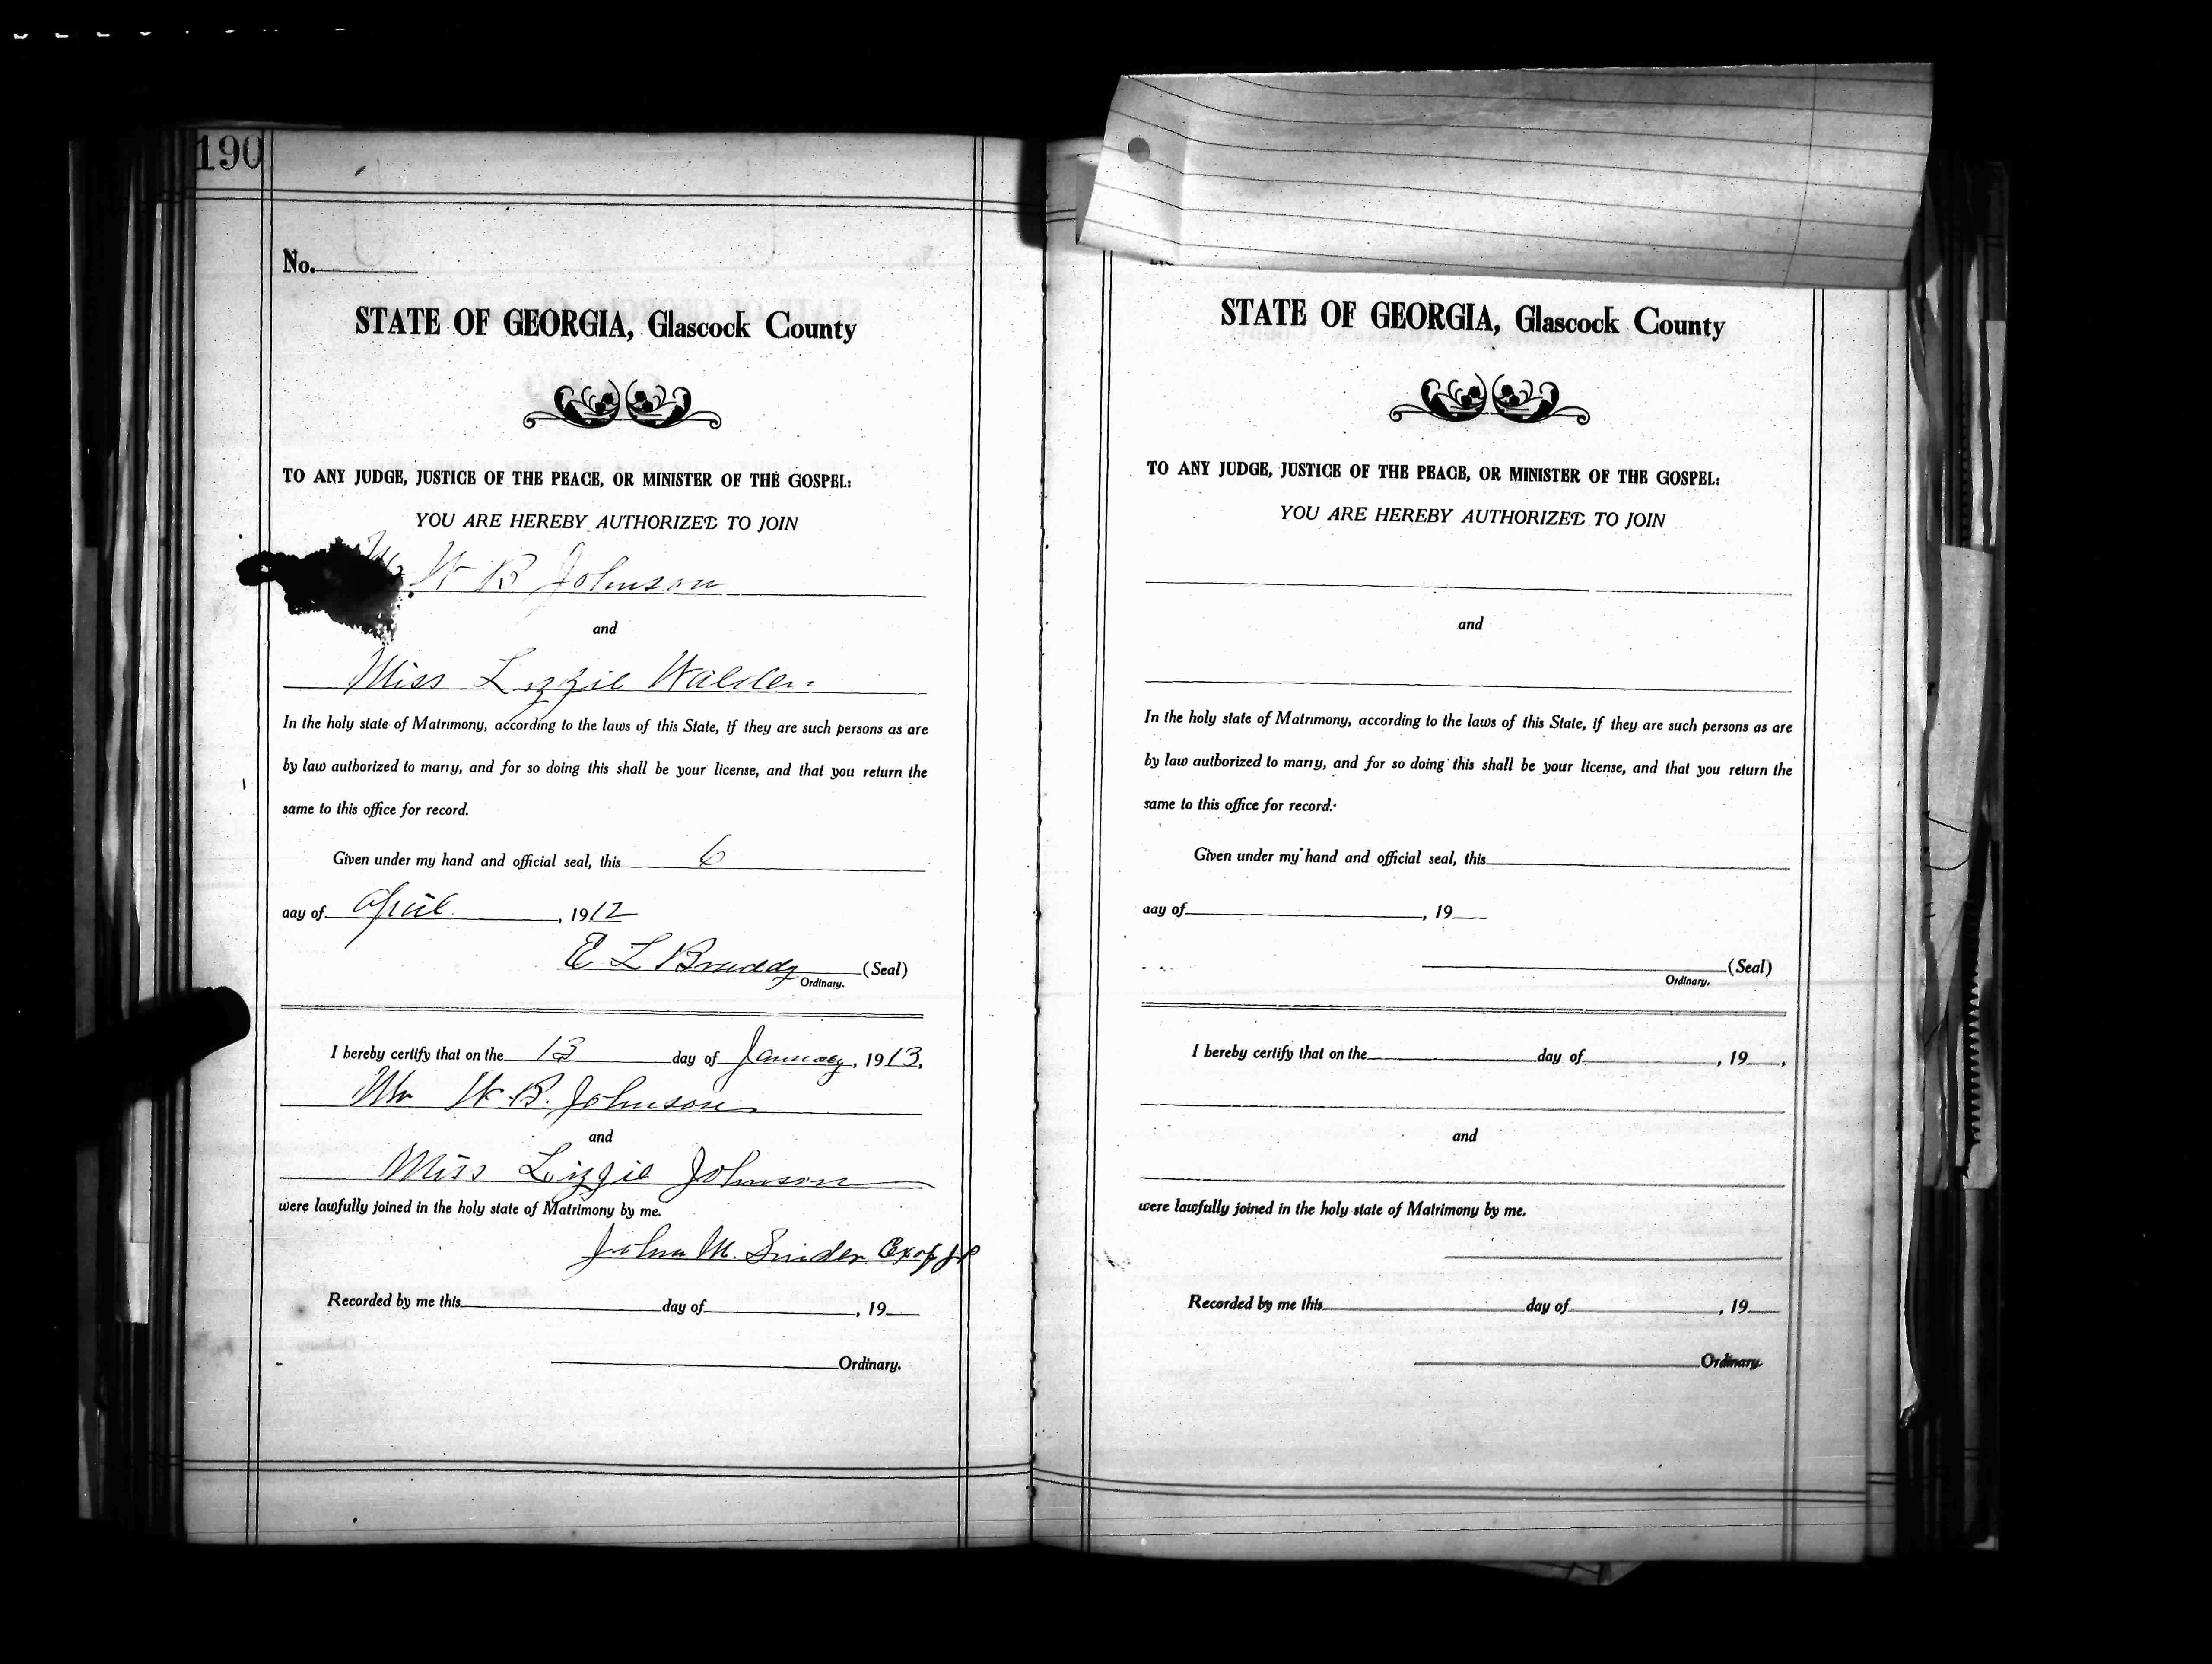 190
No.
STATE OF GEORGIA, Glascock County
TO ANY JUDGE, JUSTICE OF THE PEACE, OR MINISTER OF THE GOSPEL:
YOU ARE HEREBY AUTHORIZED TO JOIN
W B Johnson
and
Miss Lizzie Walden
In the holy state of Matrimony, according to the laws of this State, if they are such persons as are
by law authorized to marry, and for so doing this shall be your license, and that you return the
same to this office for record.
Given under my hand and official seal, this 6
day of April, 1912
E L Braddy (Seal)
Ordinary.
I hereby certify that on the 13 day of January, 1913.
Mr W. B. Johnson
and
Miss Lizzie Johnson
were lawfully joined in the holy state of Matrimony by me.
John M. Snider Exof JP
Recorded by me this day of , 19
Ordinary.
STATE OF GEORGIA, Glascock County
TO ANY JUDGE, JUSTICE OF THE PEACE, OR MINISTER OF THE GOSPEL:
YOU ARE HEREBY AUTHORIZED TO JOIN
and
In the holy state of Matrimony, according to the laws of this State, if they are such persons as are
by law authorized to marry, and for so doing this shall be your license, and that you return the
same to this office for record.
Given under my hand and official seal, this
day of , 19
(Seal)
Ordinary.
I hereby certify that on the day of , 19 .
and
were lawfully joined in the holy state of Matrimony by me.
Recorded by me this day of , 19
Ordinary.